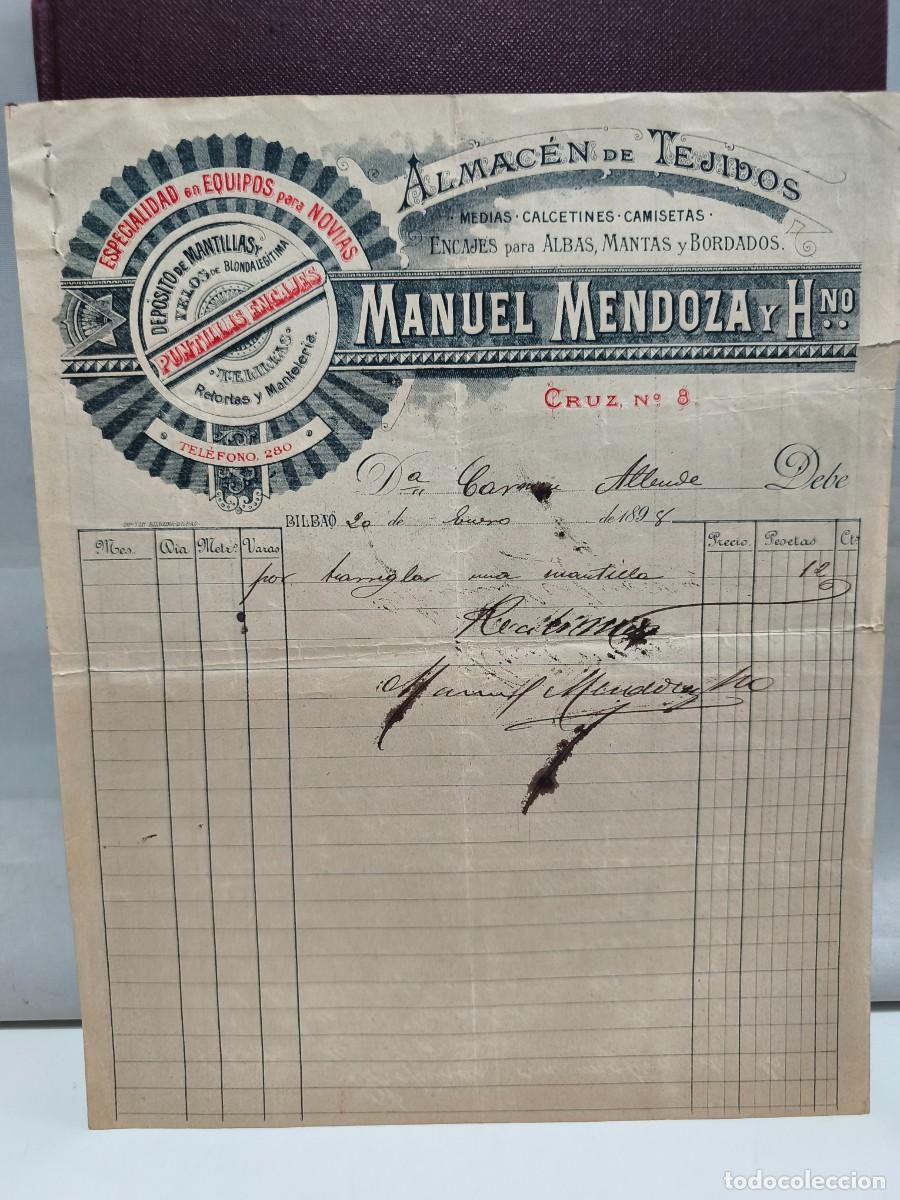 ALMACÉN DE TEJIDOS
MEDIAS · CALCETINES · CAMISETAS ·
ENCAJES para ALBAS, MANTAS y BORDADOS.
MANUEL MENDOZA Y HNO
CRUZ, Nº 8.
ESPECIALIDAD en EQUIPOS para NOVIAS
DEPÓSITO DE MANTILLAS,
VELOS DE BLONDA LEGÍTIMA
PUNTILLAS ENCAJES
TELILLAS
Retortas y Mantelería.
TELÉFONO, 280
Dª Carmen Allende Debe
BILBAO 20 de Enero de 1898
Mes. Dia Metrs. Varas Precio. Pesetas Cts
por arreglar una mantilla 12
Recibimos
Manuel Mendoza y Hno
todocoleccion